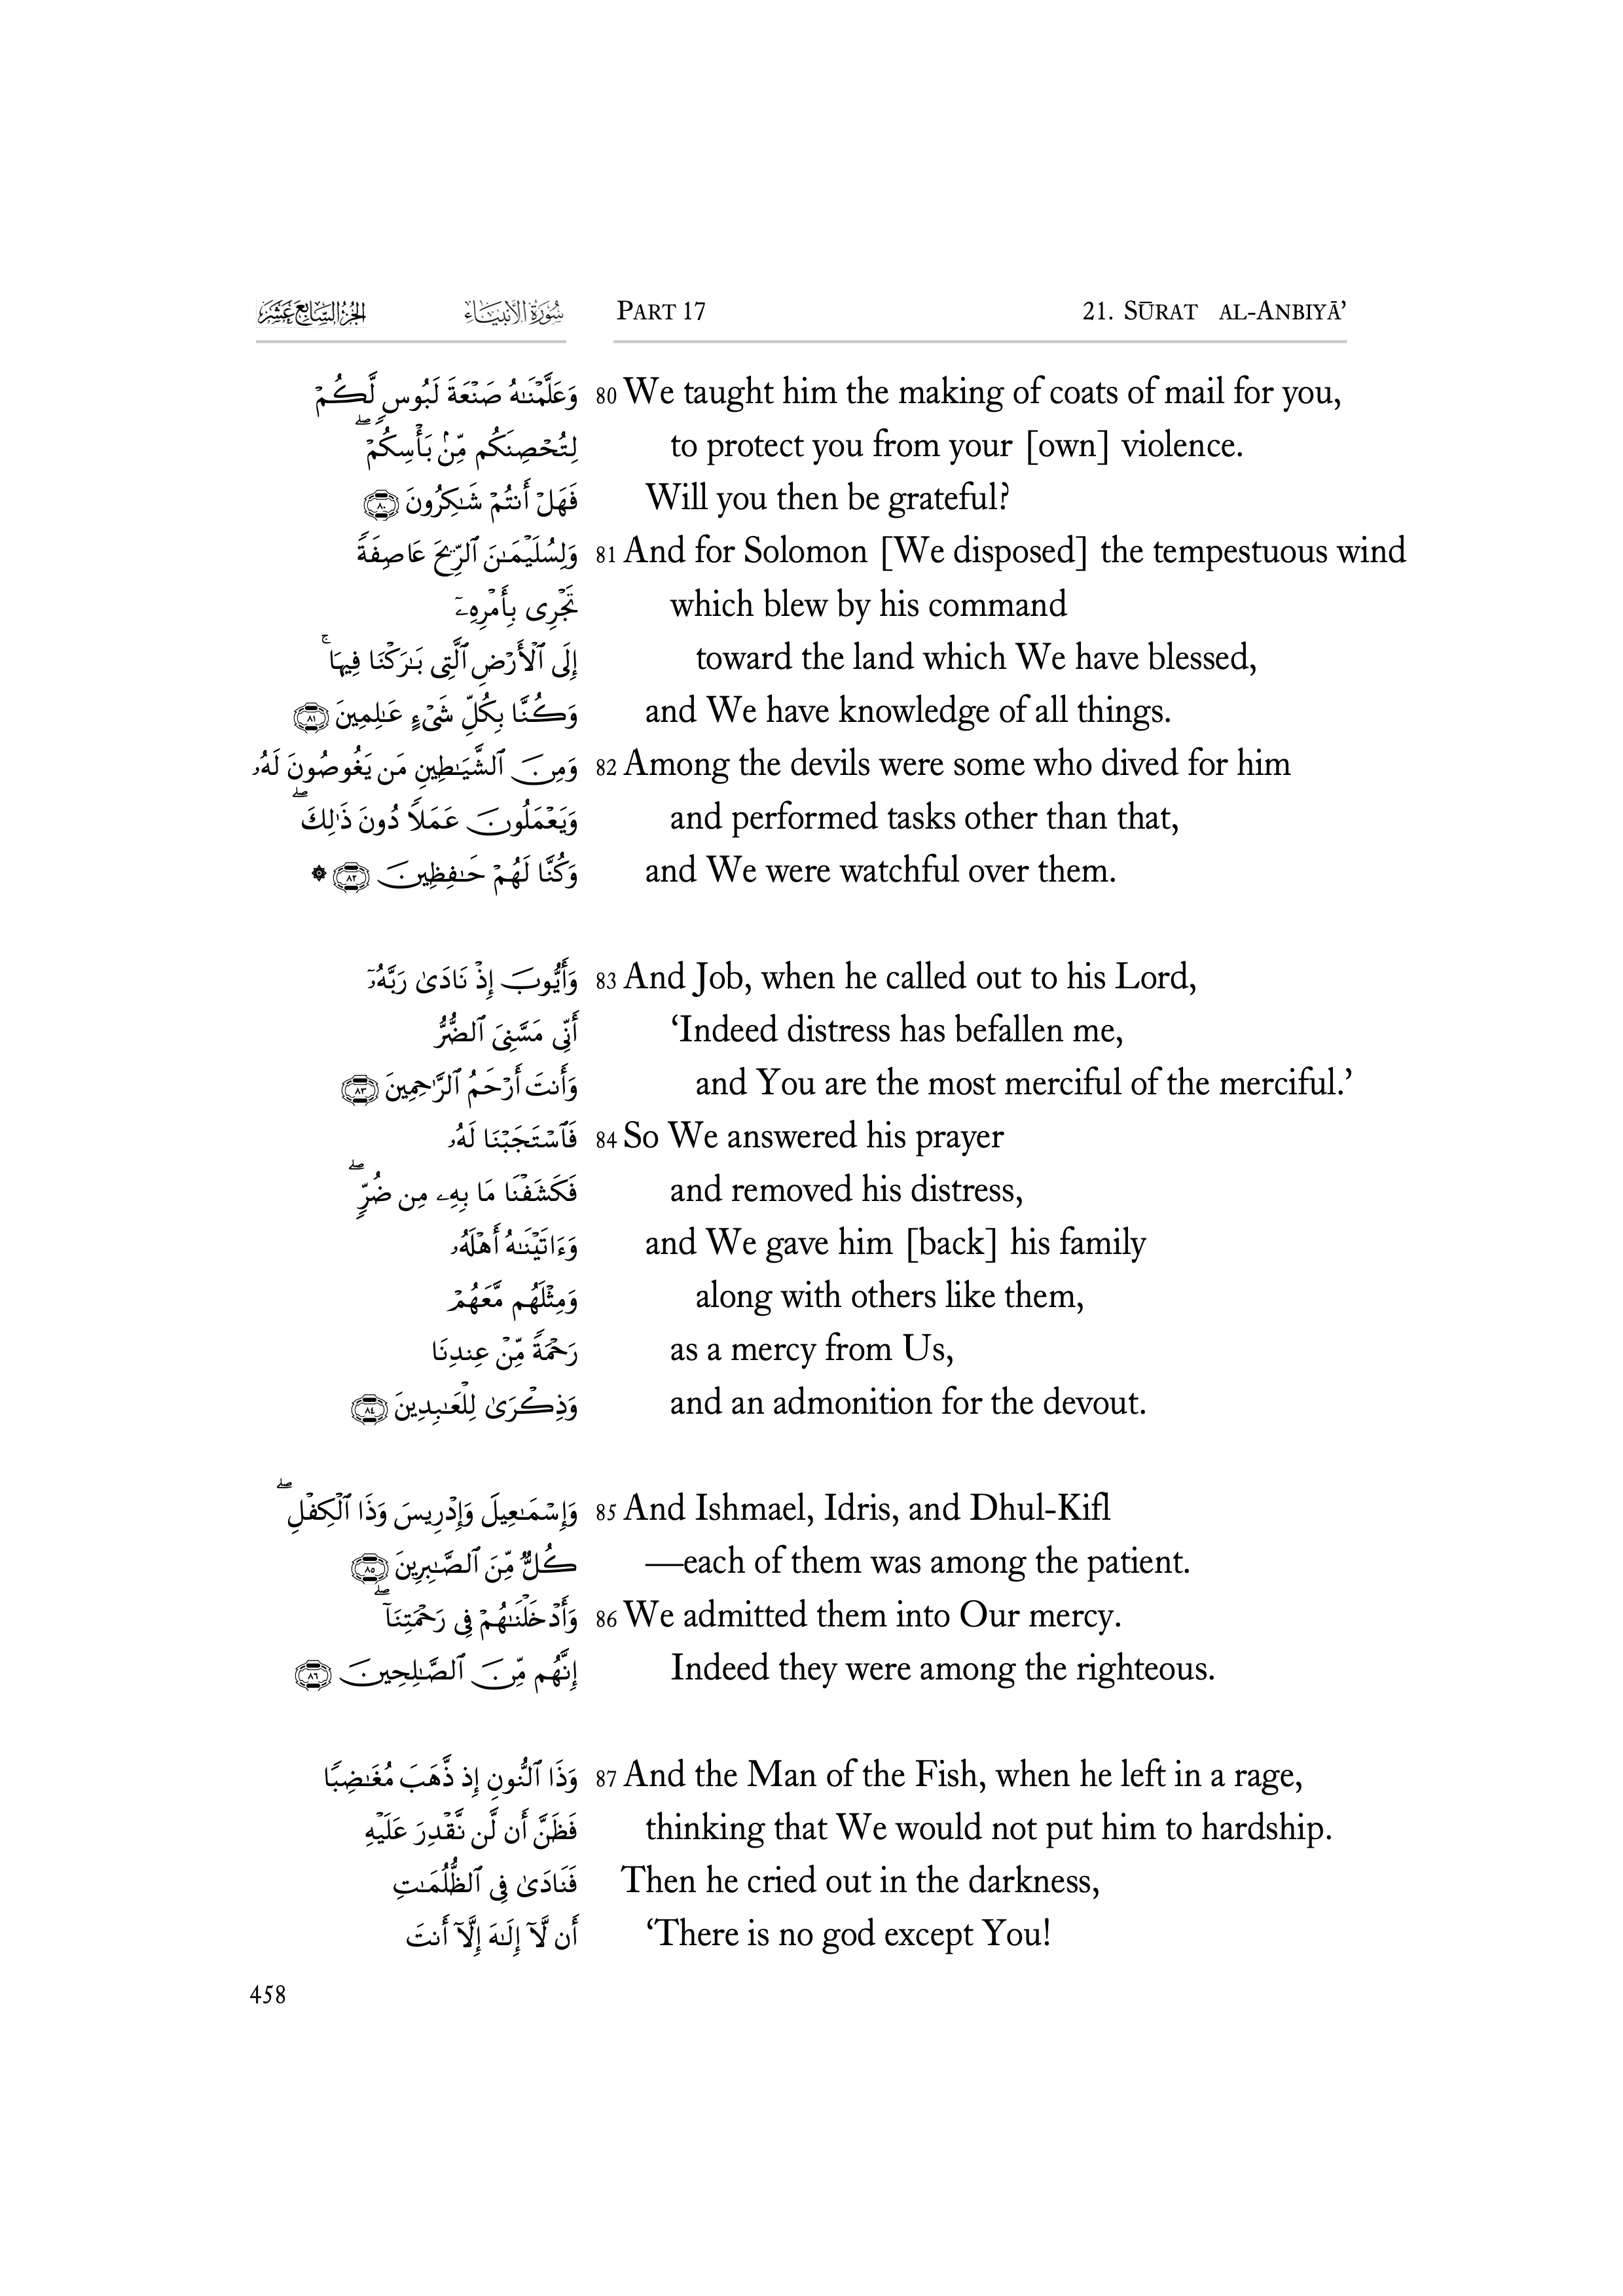 الجزء السابع عشر سورة الأنبياء PART 17 21. SŪRAT AL-ANBIYĀ’
وَعَلَّمْنَـٰهُ صَنْعَةَ لَبُوسٍ لَّكُمْ 80 We taught him the making of coats of mail for you,
لِتُحْصِنَكُم مِّنۢ بَأْسِكُمْ ۖ to protect you from your [own] violence.
فَهَلْ أَنتُمْ شَـٰكِرُونَ ٨٠ Will you then be grateful?
وَلِسُلَيْمَـٰنَ ٱلرِّيحَ عَاصِفَةً 81 And for Solomon [We disposed] the tempestuous wind
تَجْرِى بِأَمْرِهِۦٓ which blew by his command
إِلَى ٱلْأَرْضِ ٱلَّتِى بَـٰرَكْنَا فِيهَا ۚ toward the land which We have blessed,
وَكُنَّا بِكُلِّ شَىْءٍ عَـٰلِمِينَ ٨١ and We have knowledge of all things.
وَمِنَ ٱلشَّيَـٰطِينِ مَن يَغُوصُونَ لَهُۥ 82 Among the devils were some who dived for him
وَيَعْمَلُونَ عَمَلًا دُونَ ذَٰلِكَ ۖ and performed tasks other than that,
وَكُنَّا لَهُمْ حَـٰفِظِينَ ٨٢ ۞ and We were watchful over them.
وَأَيُّوبَ إِذْ نَادَىٰ رَبَّهُۥٓ 83 And Job, when he called out to his Lord,
أَنِّى مَسَّنِىَ ٱلضُّرُّ ‘Indeed distress has befallen me,
وَأَنتَ أَرْحَمُ ٱلرَّٰحِمِينَ ٨٣ and You are the most merciful of the merciful.’
فَٱسْتَجَبْنَا لَهُۥ 84 So We answered his prayer
فَكَشَفْنَا مَا بِهِۦ مِن ضُرٍّ ۖ and removed his distress,
وَءَاتَيْنَـٰهُ أَهْلَهُۥ and We gave him [back] his family
وَمِثْلَهُم مَّعَهُمْ along with others like them,
رَحْمَةً مِّنْ عِندِنَا as a mercy from Us,
وَذِكْرَىٰ لِلْعَـٰبِدِينَ ٨٤ and an admonition for the devout.
وَإِسْمَـٰعِيلَ وَإِدْرِيسَ وَذَا ٱلْكِفْلِ ۖ 85 And Ishmael, Idris, and Dhul-Kifl
كُلٌّ مِّنَ ٱلصَّـٰبِرِينَ ٨٥ —each of them was among the patient.
وَأَدْخَلْنَـٰهُمْ فِى رَحْمَتِنَآ ۖ 86 We admitted them into Our mercy.
إِنَّهُم مِّنَ ٱلصَّـٰلِحِينَ ٨٦ Indeed they were among the righteous.
وَذَا ٱلنُّونِ إِذ ذَّهَبَ مُغَـٰضِبًا 87 And the Man of the Fish, when he left in a rage,
فَظَنَّ أَن لَّن نَّقْدِرَ عَلَيْهِ thinking that We would not put him to hardship.
فَنَادَىٰ فِى ٱلظُّلُمَـٰتِ Then he cried out in the darkness,
أَن لَّآ إِلَـٰهَ إِلَّآ أَنتَ ‘There is no god except You!
458